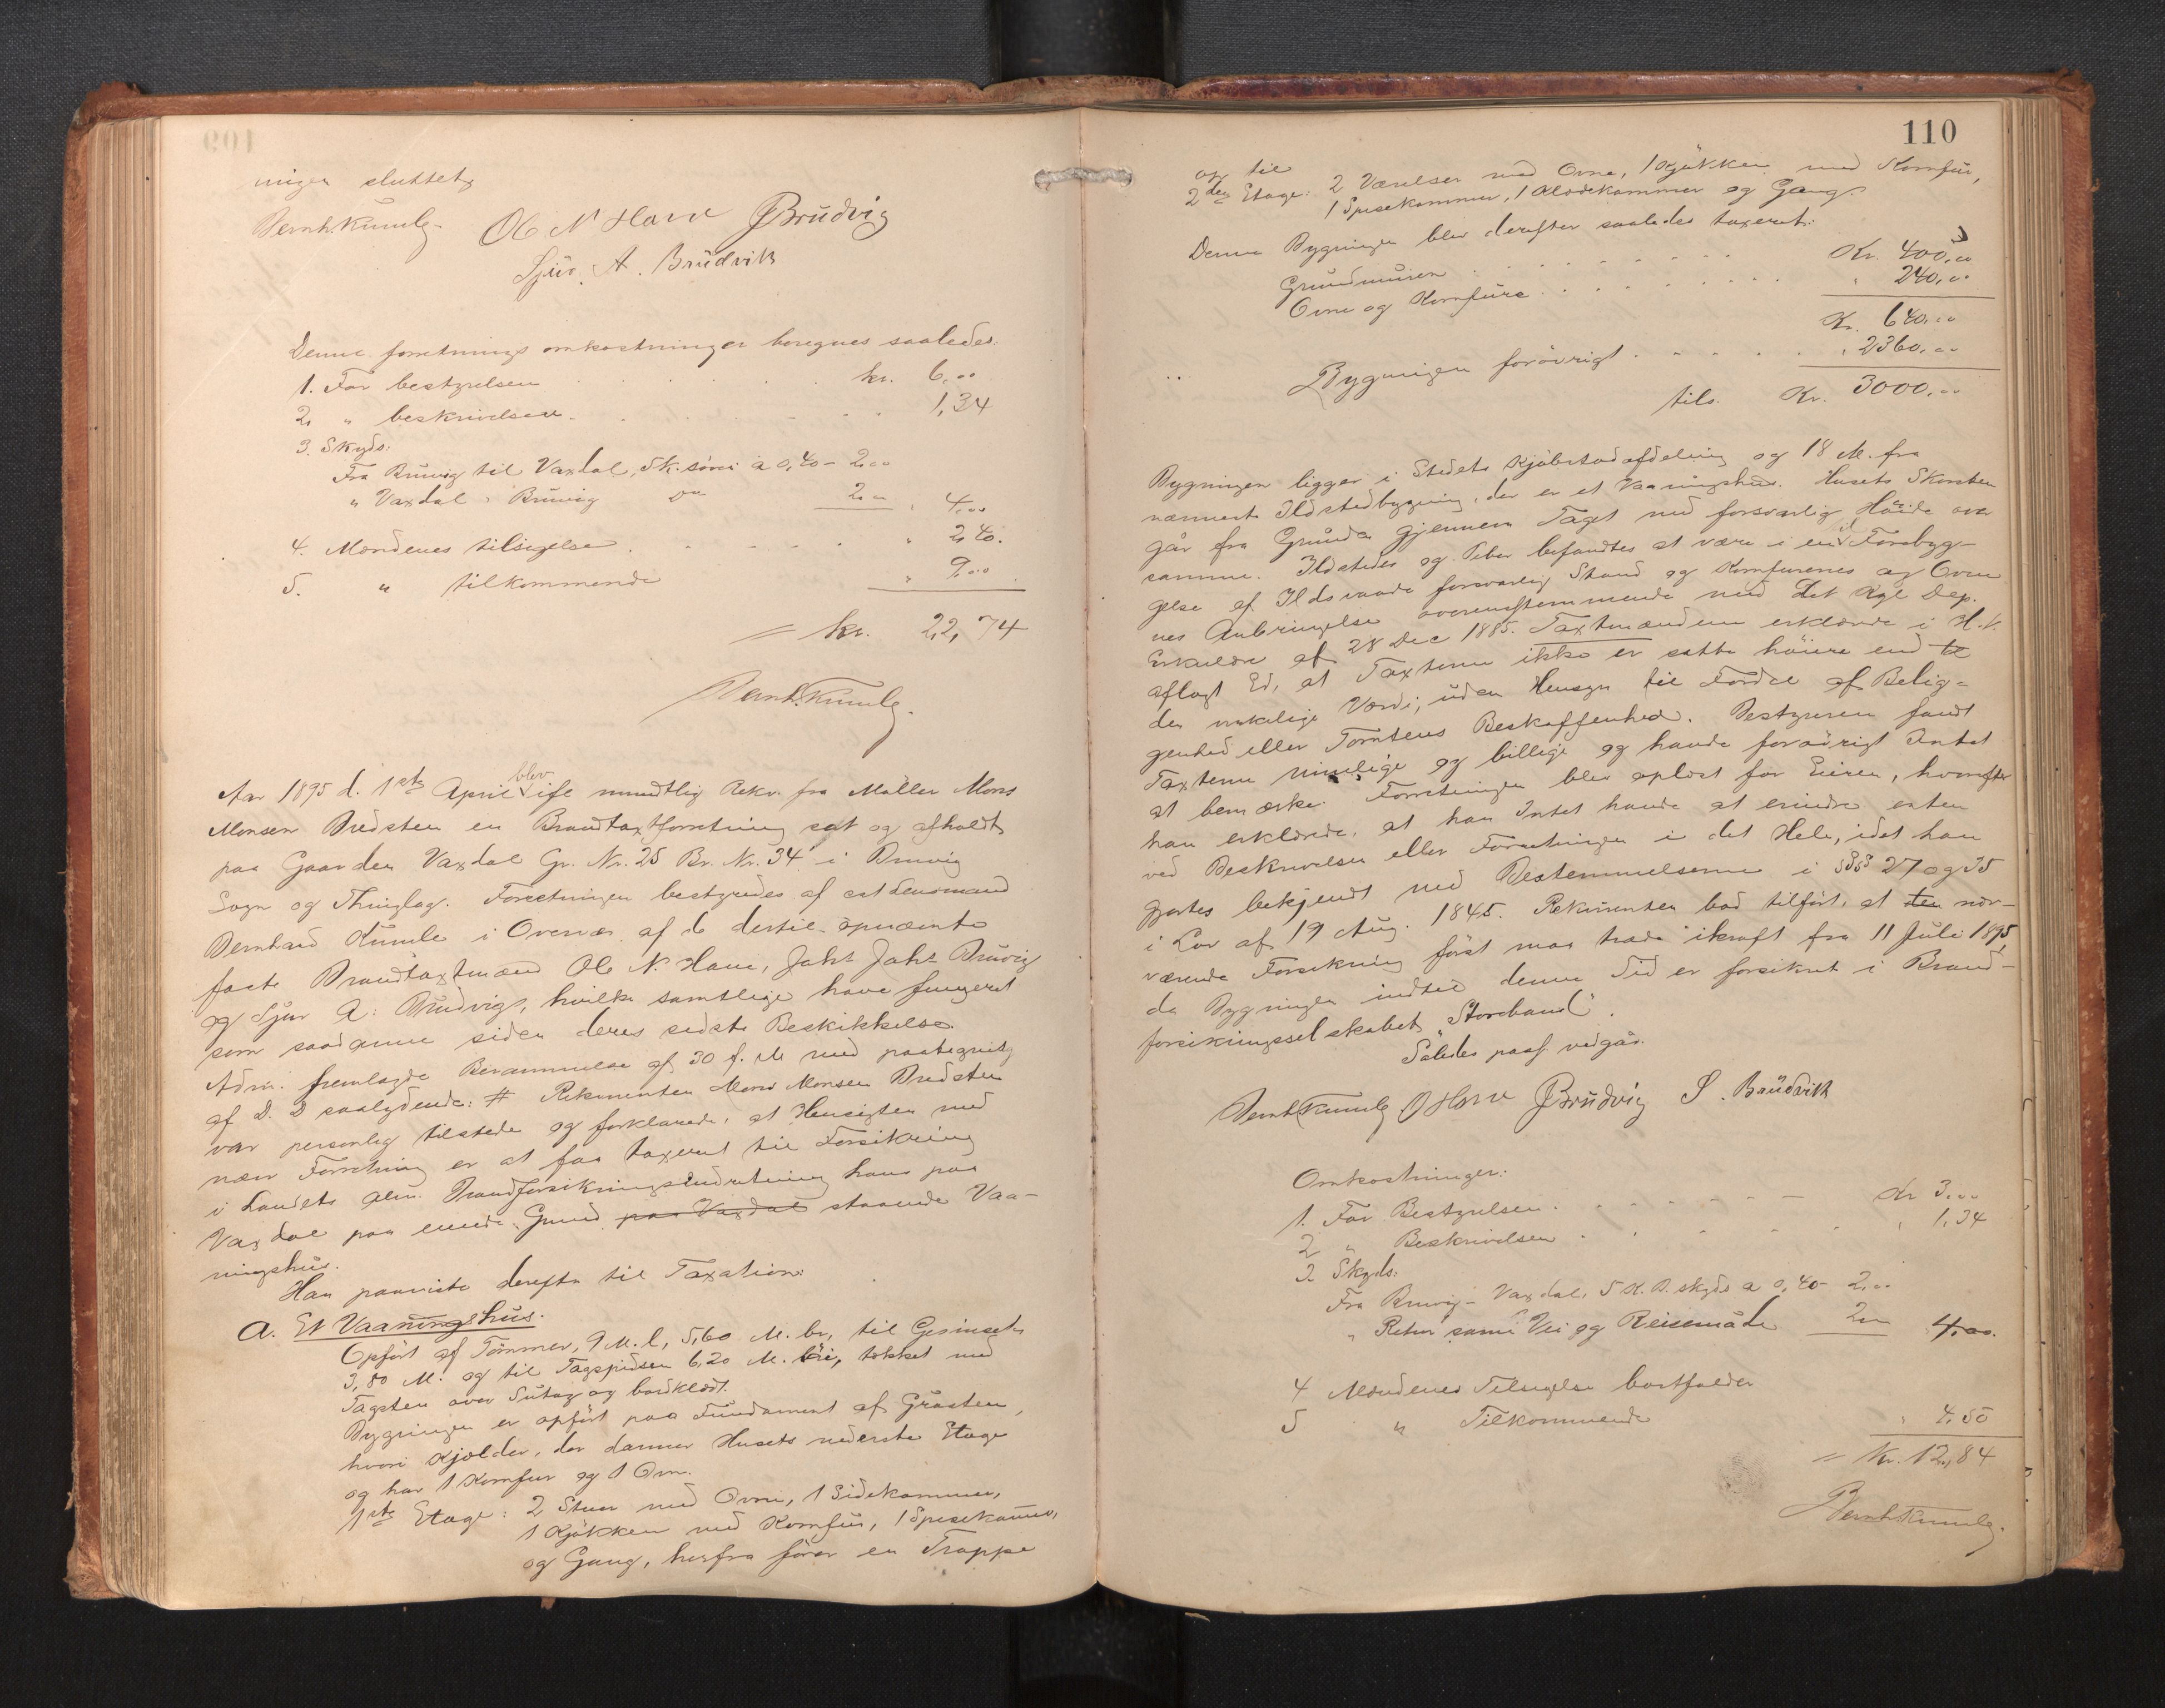 ningen sluttet,
Bernh. Kumle. Ole N Have JBrüdvig
Sjur. A. Brüdvik
Denne forretnings omkostninger beregnes saaledes:
1. For bestyrelsen kr. 6,00
2. " beskrivelsen 1,34
3. Skyds:
Fra Bruvig til Vaxdal, 5 k. sövei a 0,40 - 2,00
" Vaxdal " Bruvig Do 2,00 " 4,00
4. Mændenes tilsigelse " 2,40.
5. " tilkommende " 9,00
= kr. 22,74
Bernh. Kumle.
Aar 1895 d. 1ste April blev ifl mundtlig Rekv. fra Möller Mons
Monsen Bredsten en Brandtaxtforretning sat og afholdt
paa Gaarden Vaxdal Gr. Nr. 25 Br. Nr. 34 i Bruvig
Sogn og Thinglag. Forretningen bestyredes af cst Lensmand
Bernhard Kumle i Overvær af de dertil opnævnte
faste Brandtaxtmænd Ole N. Have, Jakt Jakt Bruvig
og Sjur A. Brudvig, hvilke samtlige have fungeret
som saadanne siden deres sidste Beskikkelse.
Adm. fremlagde Berammelse af 30 f. M med paategning
af D. D saalydende: # Rekvirenten Mons Monsen Bredsten
var personlig tilstede og forklarede, at Hensigten med
nærv Forretning er at faa taxeret til Forsikring
i Landets alm. Brandforsikringsindretning hans paa
Vaxdal paa eiende Grund paa Vaxdal staaende Vaa-
ningshus.
Han paaviste derefter til Taxation:
A. Et Vaaningshus.
Opfört af Tömmer, 9 M. l, 5,60 M. br, til Gesimset
3,80 M. og til Tagspidsen 6,20 M. höi, tækket med
Tagsten over Sutag og bordklædt.
Bygningen er opfört paa Fundament af Graasten,
hvori Kjelder, der danner Husets nederste Etage
og har 1 Komfur og 1 Ovn.
1ste Etage: 2 Stuer med Ovne, 1 Sidekammer,
1 Kjökken med Komfür, 1 Spisekammer,
og Gang, herfra förer en Trappe
110
op til
2den Etage: 2 Værelser med Ovne, 1 Kjökken med Komfür,
1 Spisekammer, 1 Klædekammer og Gang.
Denne Bygningen blev derefter saaledes taxeret:
Grundmuren Kr. 400,00
Ovne og Komfure " 240,00
Kr. 640,00
Bygningen forövrigt " 2360,00
tils. Kr. 3000,00
Bygningen ligger i Stedets Kjöbstadafdeling og 18 M. fra
nærmeste Ildstedbygning, der er et Vaaningshus. Husets Skorsten
går fra Grunden gjennem Taget med forsvarlig Höide over
samme. Ildsteder og Piber befandtes at være i en til Forebyg-
gelse af Ildsvaade forsvarlig Stand og Komfurenes og Ovne
nes Anbringelse overensstemmende med Det Kgl Dep.
Cirkulære af 28 Dec 1885. Taxtmændene erklærede i H. t.
aflagt Ed, at Taxterne ikke er satte höiere end til
den virkelige Værdi, uden Hensyn til Fordel af Belig-
genhed eller Tomtens Beskaffenhed. Bestyreren fandt
Taxterne rimelige og billige og havde forövrigt Intet
at bemærke. Forretningen blev oplæst for Eieren, hvorefter
han erklærede, at han Intet havde at erindre enten
ved Beskrivelsen eller Forretningen i det Hele, idet han
gjortes bekjendt med Bestemmelserne i §§§ 27 og 35
i Lov af 19 Aug. 1845. Rekvirenten bad tilfört, at den nær-
værende Forsikring först maa træde ikraft fra 11 Juli 1895,
da Bygningen indtil denne Tid er forsikret i Brand-
forsikringsselskabet "Storebrand".
Således passf. vedgås.
Bernh Kumle O Have JBrüdvig S. Brüdvik
Omkostninger:
1. For Bestyrelsen Kr 3,00
2 " Beskrivelsen " 1,34
3 Skyds:
Fra Bruvig - Vaxdal, 5 K. B. skyds a 0,40 - 2,00
" Retur samme Vei og Reisemåde 2,00 4,00.
4 Mændenes Tilsigelse bortfalder
5 " Tilkommende " 4,50
= Kr. 12,84
Bernh Kumle.